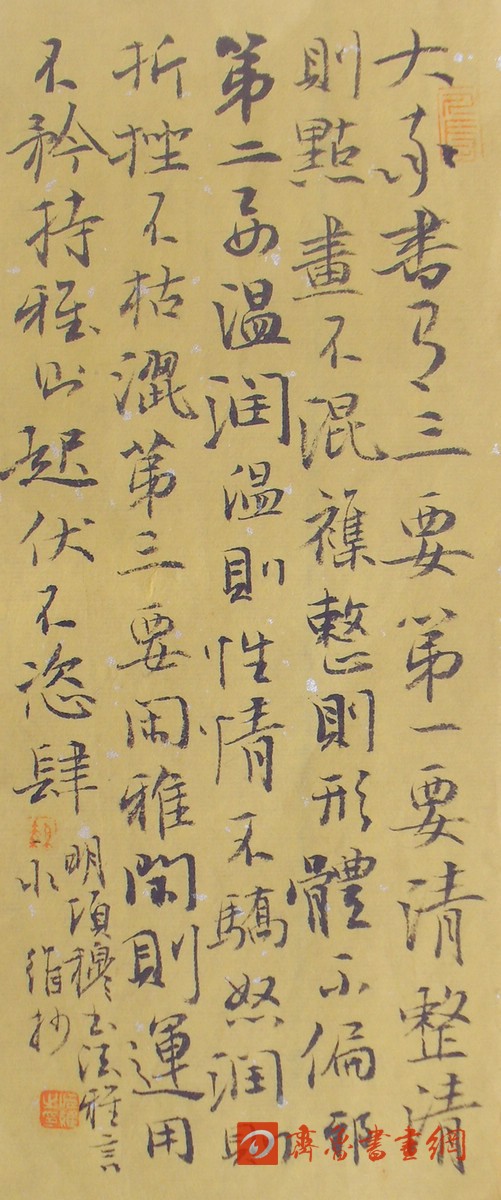 大家書有三要第一要清整清
則點畫不混襍整則形體不偏邪
第二要温润温則性情不驕怒润則
折挫不枯澀第三要閑雅閑則運用
不矜持雅則起伏不恣肆
明項穆书法雅言
抄
齊魯書畫網